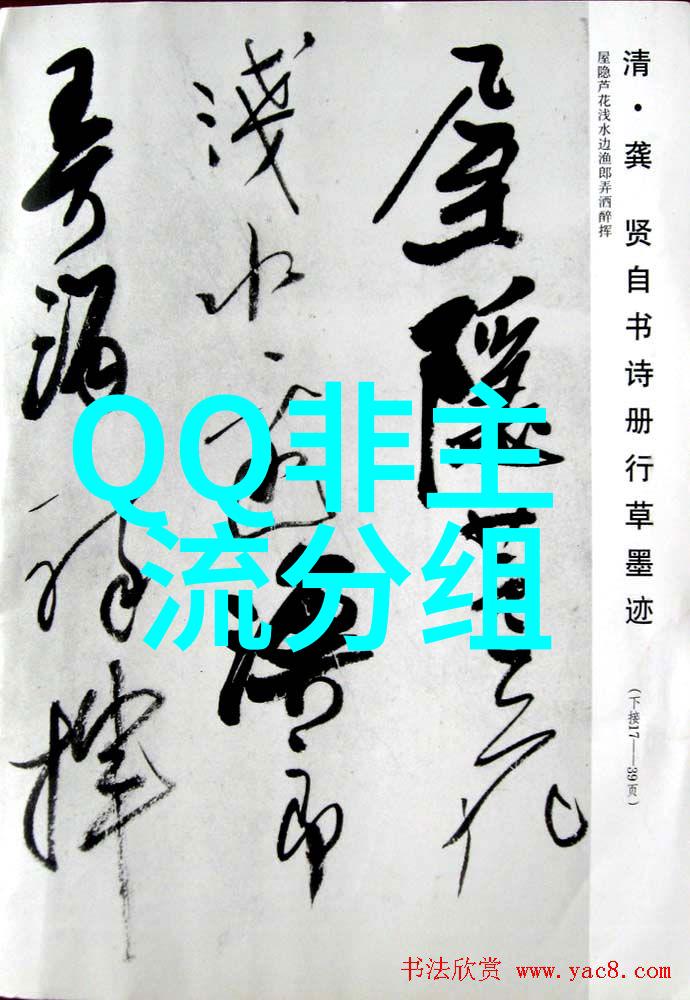 清·龚 贤自书诗册行草墨迹
(下接17——39页)
屋隐芦花浅水边渔郎弄洒醉挥
屋隱蘆花
淺水邊漁郎
弄酒醉揮
QQ非主
流分组
书法欣赏 www.yac8.com